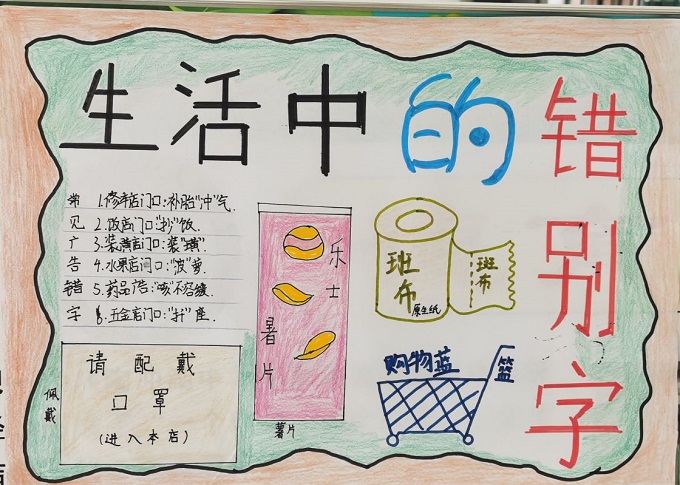 生活中的错别字
常见广告错字
1.修车店门口:补胎“冲”气.
2.饭店门口:“抄”饭.
3.装潢店门口:装“璜”.
4.水果店门口:“波”萝.
5.药品广告:“咳”不容缓.
6.五金店门口:“扦”座.
请配戴
口罩
(进入本店)
佩戴
乐士
暑片
薯片
班布
原生纸
斑布
购物蓝
篮